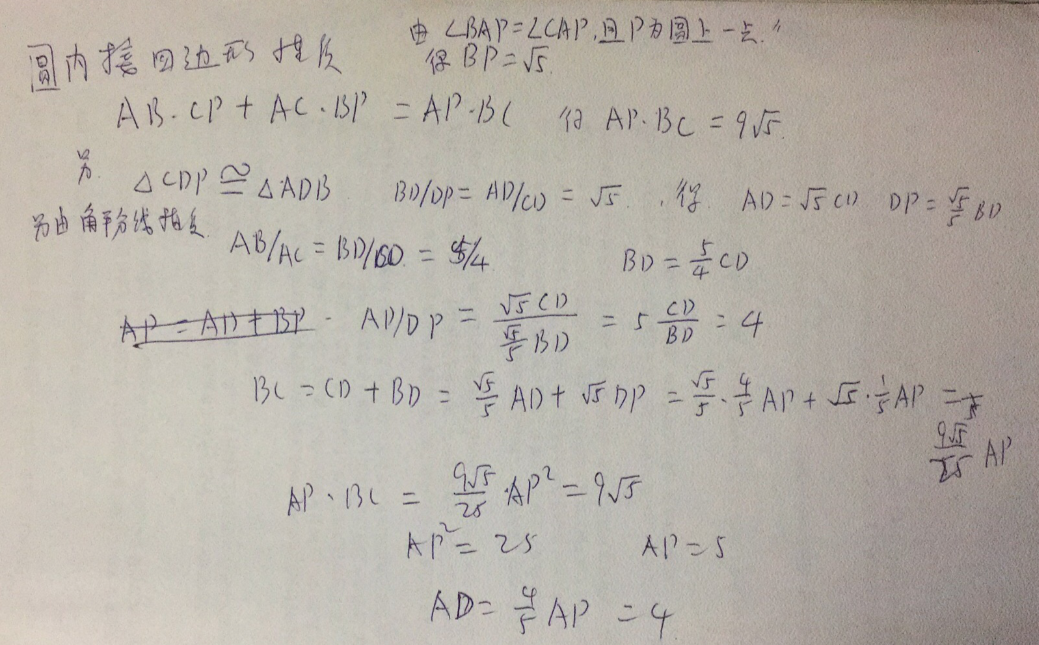 由 ∠BAP=∠CAP,且P为圆上一点.
圆内接四边形性质 得 BP=√5.
AB·CP + AC·BP = AP·BC 得 AP·BC = 9√5.
另. △CDP ≅ △ADB BD/DP = AD/CD = √5. 得. AD=√5 CD DP = √5/5 BD
另由角平分线性质
AB/AC = BD/CD = 5/4 BD = 5/4 CD
AP = AD + BP · AD/DP = √5 CD / (√5/5 BD) = 5 CD/BD = 4
BC = CD + BD = √5/5 AD + √5 DP = √5/5 · 4/5 AP + √5 · 1/5 AP =
9√5/25 AP
AP · BC = 9√5/25 · AP² = 9√5
AP² = 25 AP = 5
AD = 4/5 AP = 4